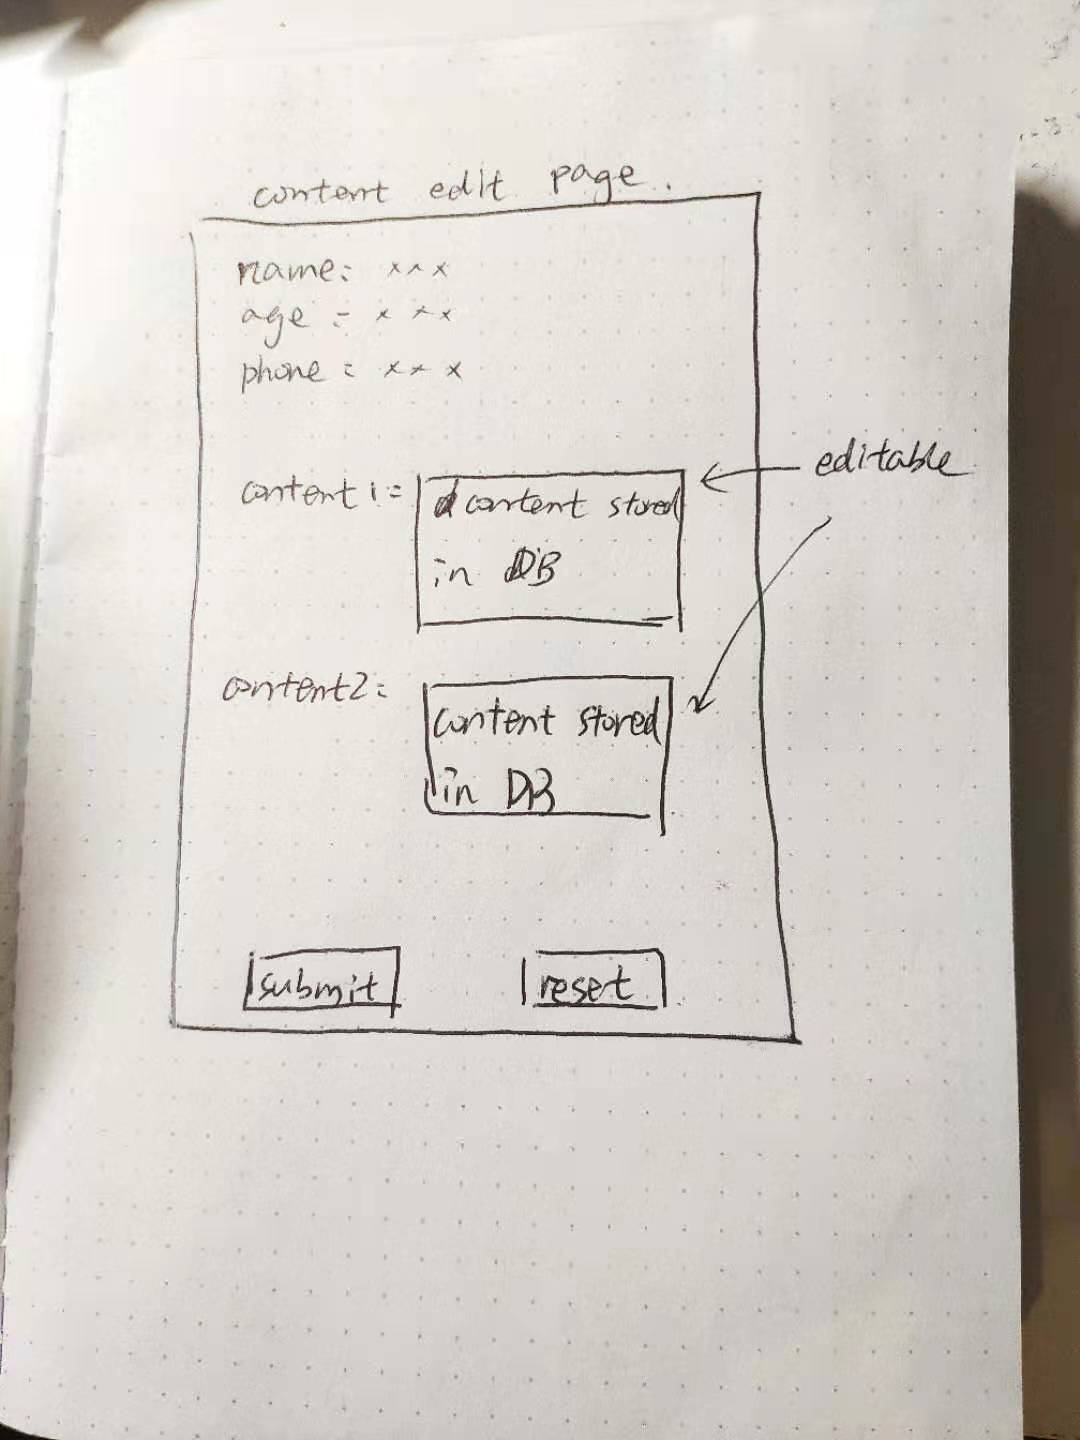 content edit page.
name: xxx
age: xxx
phone: xxx
editable
content1: content stored
in DB
content2: content stored
in DB
submit reset